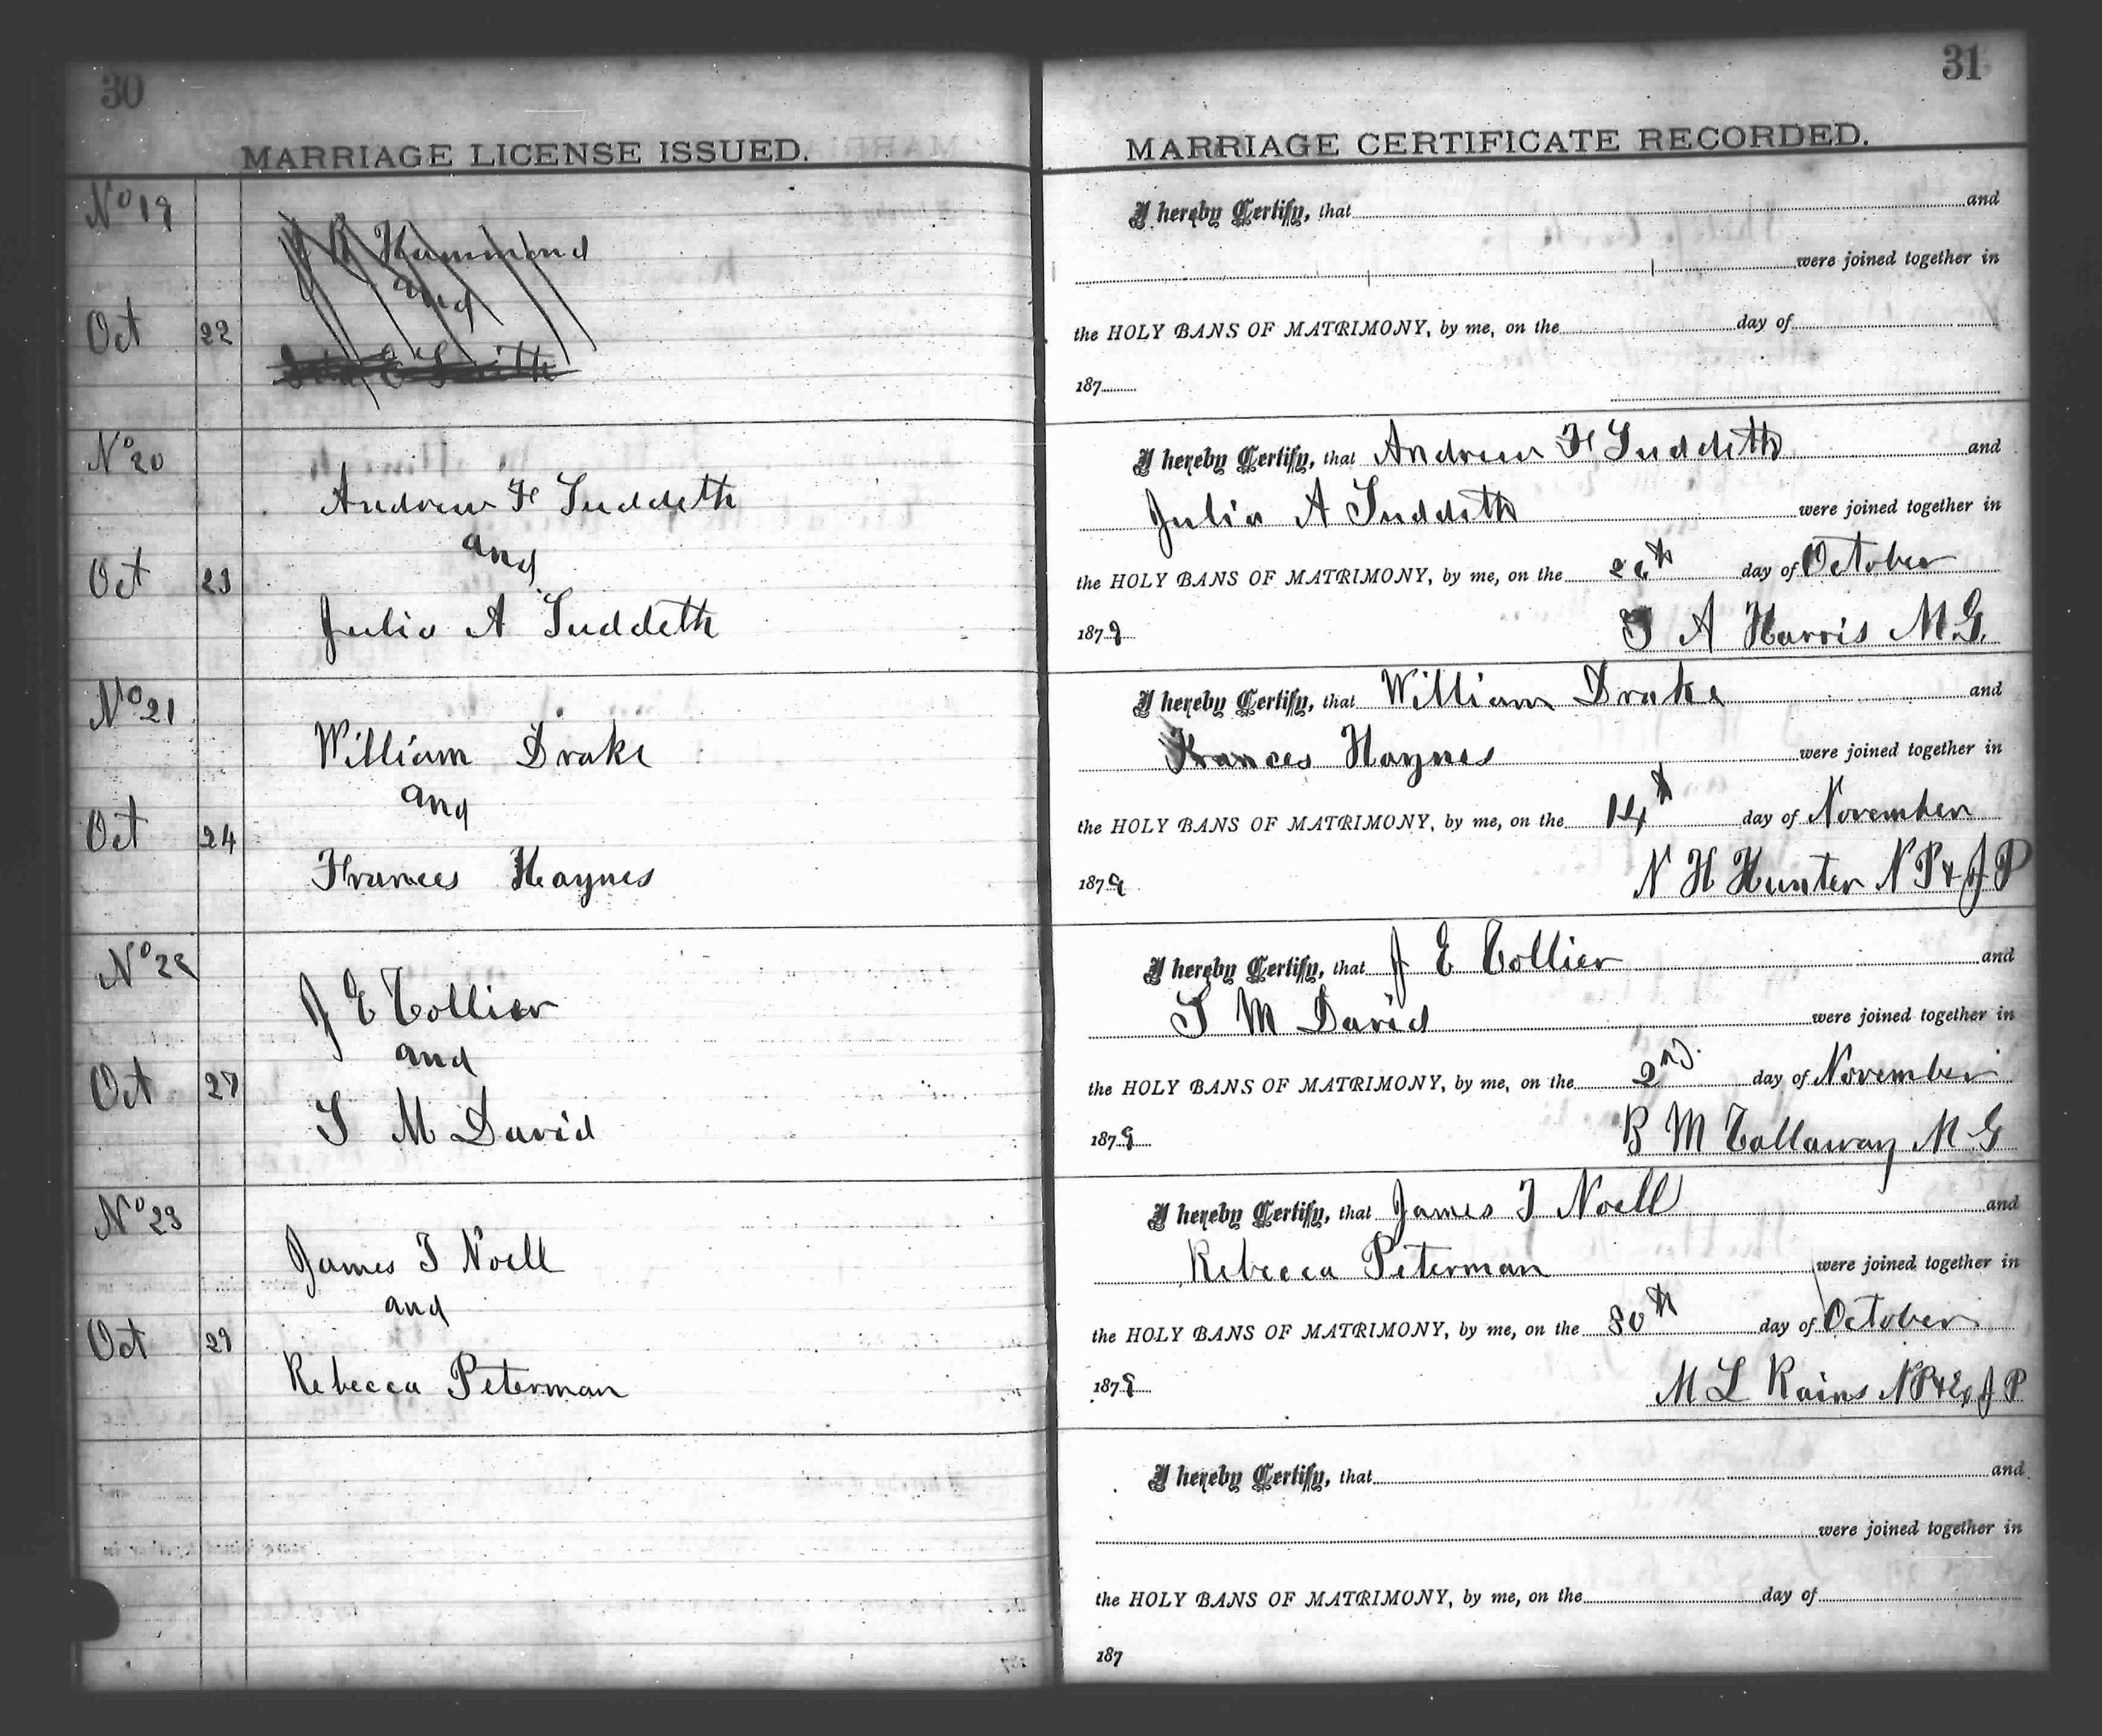 30
MARRIAGE LICENSE ISSUED.
No 19
J R Hammond
and
Oct 22
E Smith
No 20
Andrew F Suddeth
and
Oct 23
Julia A Suddeth
No 21
William Drake
and
Oct 24
Frances Haynes
No 22
J E Collier
and
Oct 27
S M David
No 23
James T Noell
and
Oct 29
Rebecca Peterman
31
MARRIAGE CERTIFICATE RECORDED.
I hereby Certify, that and
were joined together in
the HOLY BANS OF MATRIMONY, by me, on the day of
187
I hereby Certify, that Andrew F Suddeth and
Julia A Suddeth were joined together in
the HOLY BANS OF MATRIMONY, by me, on the day of October
1879
A Harris M.G.
I hereby Certify, that William Drake and
Frances Haynes were joined together in
the HOLY BANS OF MATRIMONY, by me, on the 14th day of November
1879
N H Hunter N P & J P
I hereby Certify, that J E Collier and
S M David were joined together in
the HOLY BANS OF MATRIMONY, by me, on the 2nd day of November
1879
B M Callaway M G
I hereby Certify, that James T Noell and
Rebecca Peterman were joined together in
the HOLY BANS OF MATRIMONY, by me, on the 30th day of October
1879
M L Rains N P & Ex J P
I hereby Certify, that and
were joined together in
the HOLY BANS OF MATRIMONY, by me, on the day of
187